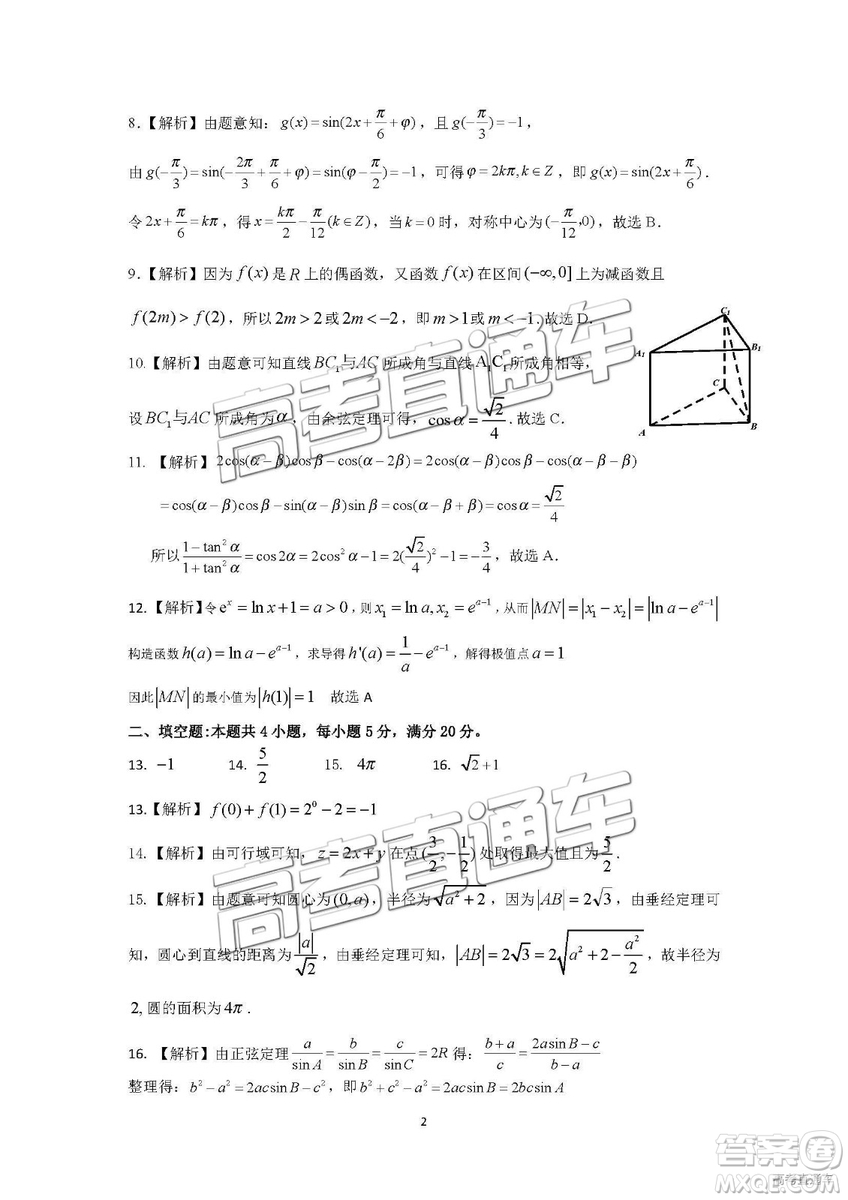 8.【解析】由题意知：g(x)=sin(2x+π/6+φ)，且g(-π/3)=-1，
由g(-π/3)=sin(-2π/3+π/6+φ)=sin(φ-π/2)=-1，可得φ=2kπ,k∈Z，即g(x)=sin(2x+π/6)．
令2x+π/6=kπ，得x=kπ/2-π/12(k∈Z)，当k=0时，对称中心为(-π/12,0)，故选 B．
9.【解析】因为f(x)是R上的偶函数，又函数f(x)在区间(-∞,0]上为减函数且
f(2m)>f(2)，所以2m>2或2m<-2，即m>1或m<-1.故选 D．
10.【解析】由题意可知直线BC₁与AC所成角与直线A₁C₁所成角相等，
设BC₁与AC所成角为α，由余弦定理可得，cosα=√2/4.故选 C．
C₁
A₁
B₁
C
A
B
11. 【解析】2cos(α-β)cosβ-cos(α-2β)=2cos(α-β)cosβ-cos(α-β-β)
=cos(α-β)cosβ-sin(α-β)sinβ=cos(α-β+β)=cosα=√2/4
所以(1-tan²α)/(1+tan²α)=cos2α=2cos²α-1=2(√2/4)²-1=-3/4，故选 A．
12.【解析】令eˣ=ln x+1=a>0，则x₁=ln a,x₂=e^(a-1)，从而|MN|=|x₁-x₂|=|ln a-e^(a-1)|
构造函数h(a)=ln a-e^(a-1)，求导得h'(a)=1/a-e^(a-1)，解得极值点a=1
因此|MN|的最小值为|h(1)|=1 故选 A
二、填空题:本题共 4 小题，每小题 5 分，满分 20 分。
13. -1 14. 5/2 15. 4π 16. √2+1
13.【解析】f(0)+f(1)=2⁰-2=-1
14.【解析】由可行域可知，z=2x+y在点(3/2,-1/2)处取得最大值且为5/2．
15.【解析】由题意可知圆心为(0,a)，半径为√(a²+2)，因为|AB|=2√3，由垂经定理可
知，圆心到直线的距离为|a|/√2，由垂经定理可知，|AB|=2√3=2√(a²+2-a²/2)，故半径为
2,圆的面积为4π．
16. 【解析】由正弦定理a/sinA=b/sinB=c/sinC=2R得：(b+a)/c=(2asinB-c)/(b-a)
整理得：b²-a²=2acsinB-c²，即b²+c²-a²=2acsinB=2bcsinA
2
高考直通车
高考直通车
答案圈
MXQE.COM
高考直通车